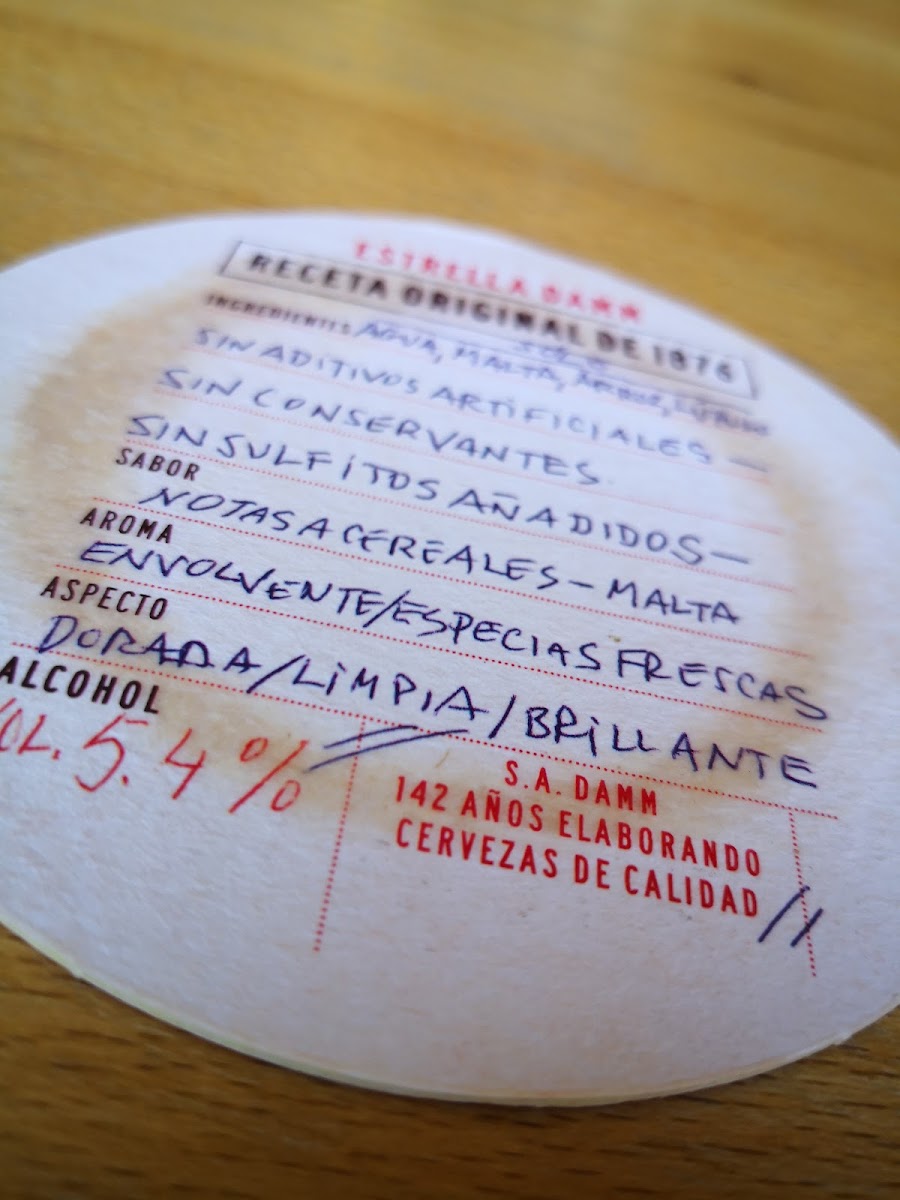 ESTRELLA DAMM
RECETA ORIGINAL DE 1876
SOLO
INGREDIENTES AGUA, MALTA, ARROZ, LÚPULO
SIN ADITIVOS ARTIFICIALES —
SIN CONSERVANTES
SIN SULFITOS AÑADIDOS —
SABOR
NOTAS A CEREALES - MALTA
AROMA
ENVOLVENTE/ESPECIAS FRESCAS
ASPECTO
DORADA/LIMPIA/BRILLANTE
ALCOHOL
VOL. 5.4%
S.A. DAMM
142 AÑOS ELABORANDO
CERVEZAS DE CALIDAD //